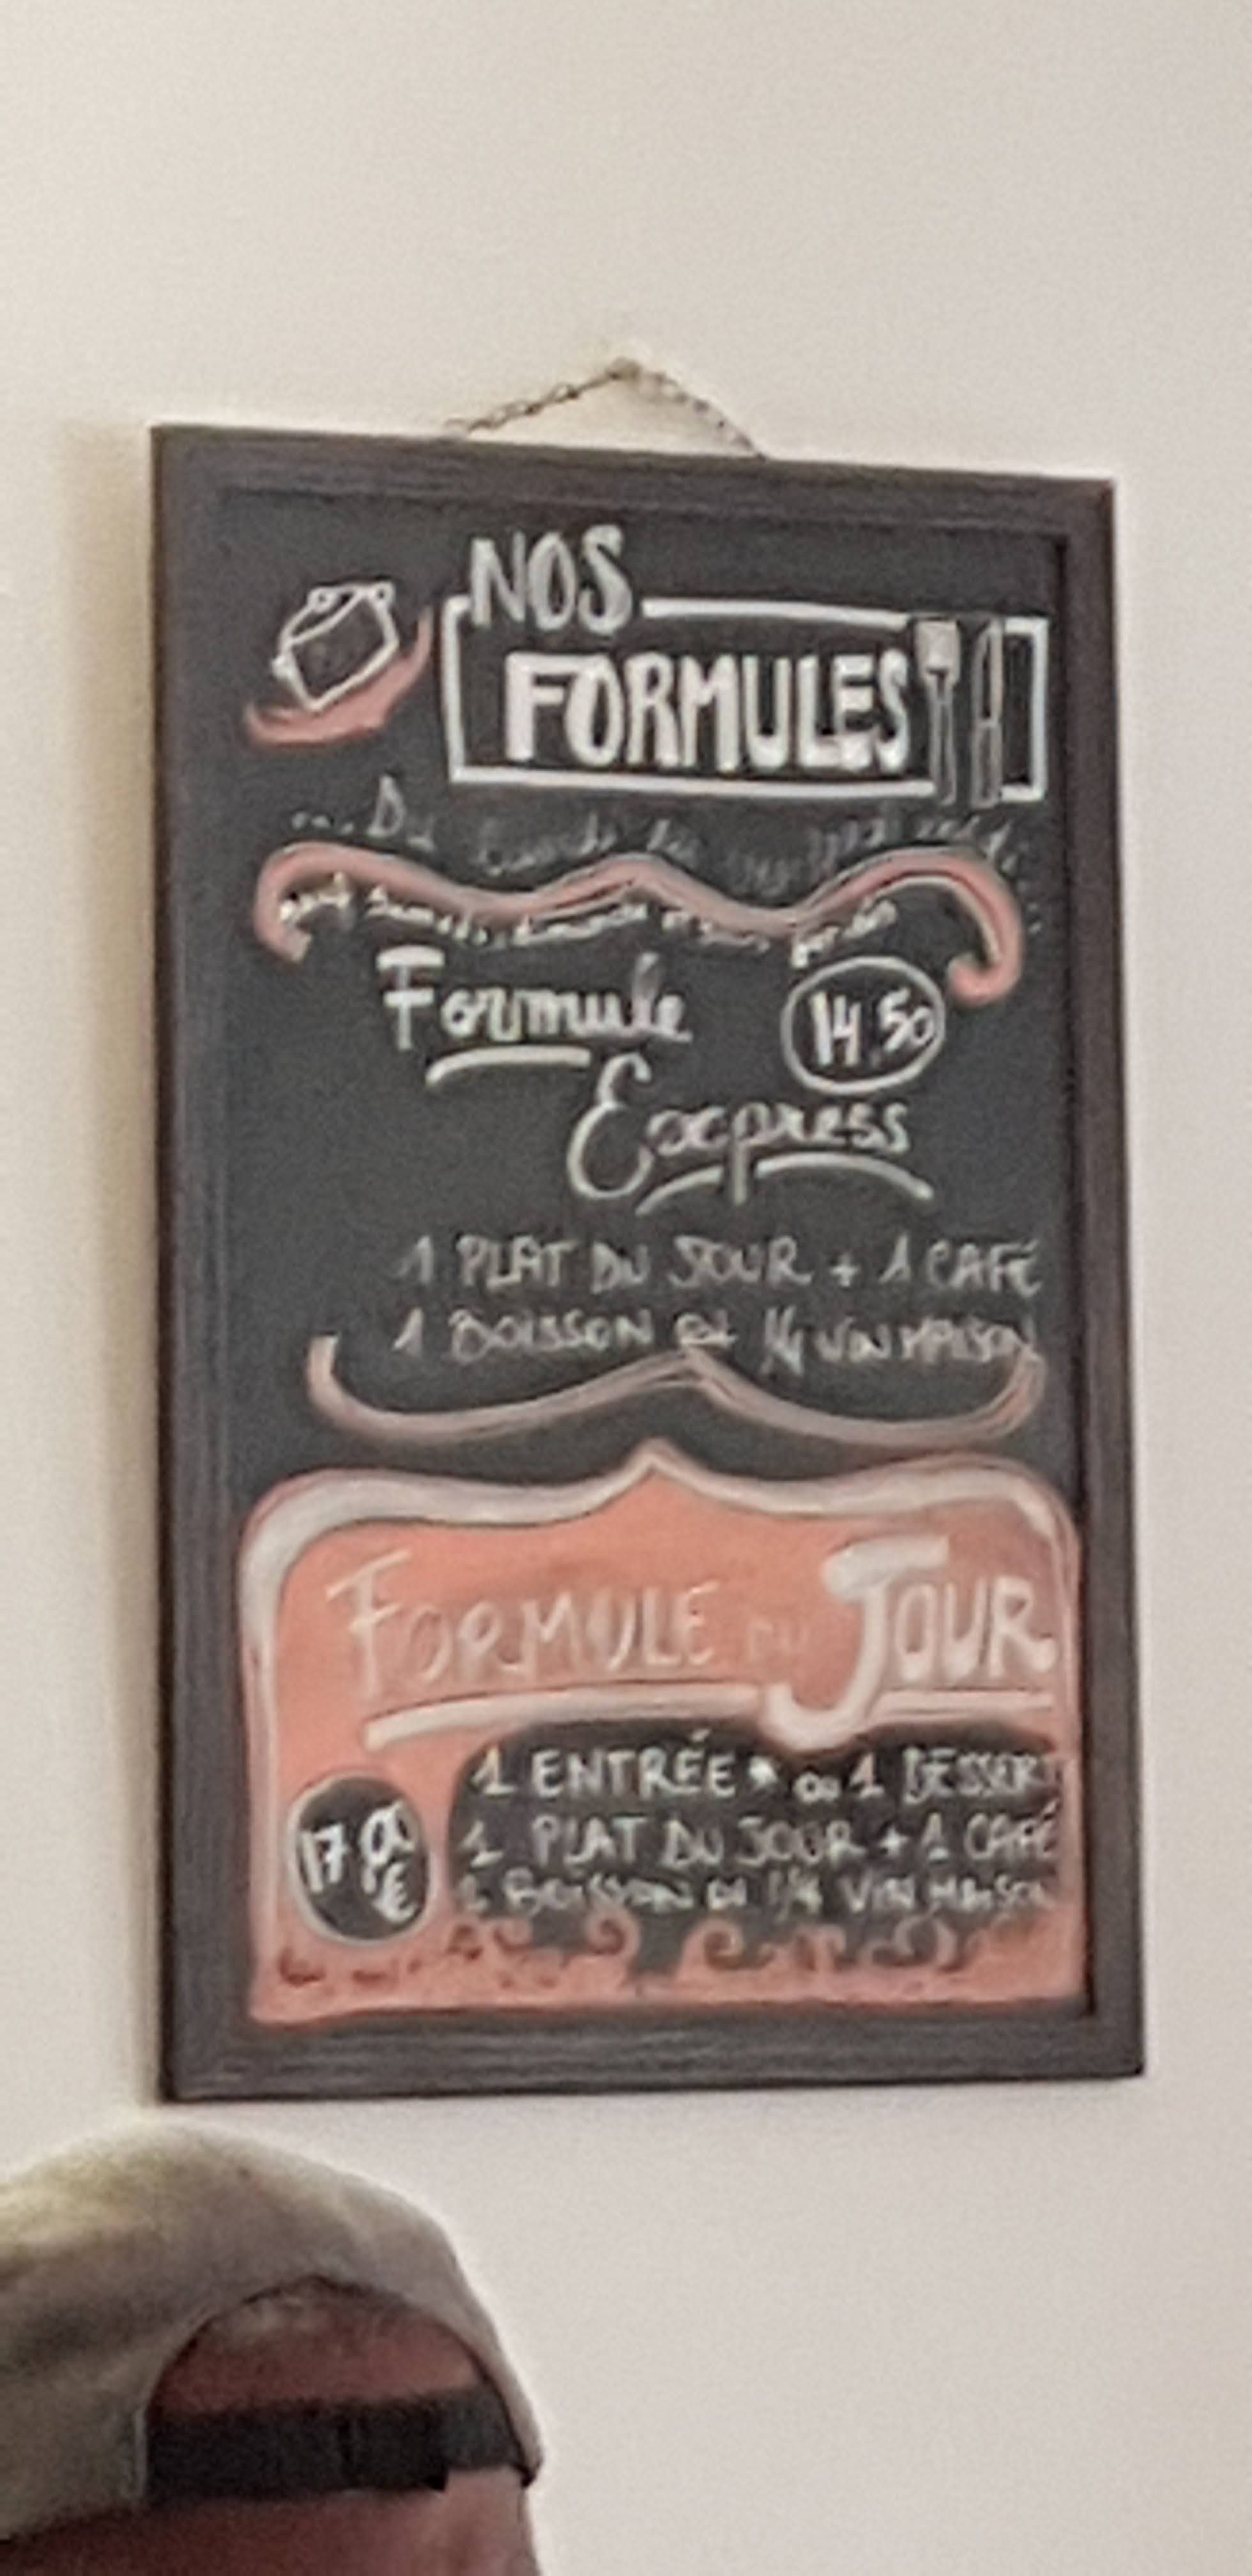 NOS
FORMULES
... Du Lundi au
Sauf Samedi, dimanche et jours fériés
Formule 14.50
Express
1 PLAT DU JOUR + 1 CAFÉ
1 BOISSON ou 1/4 VIN MAISON
FORMULE DU JOUR
1 ENTRÉE * ou 1 DESSERT
17.00 €
1 PLAT DU JOUR + 1 CAFÉ
1 BOISSON ou 1/4 VIN MAISON